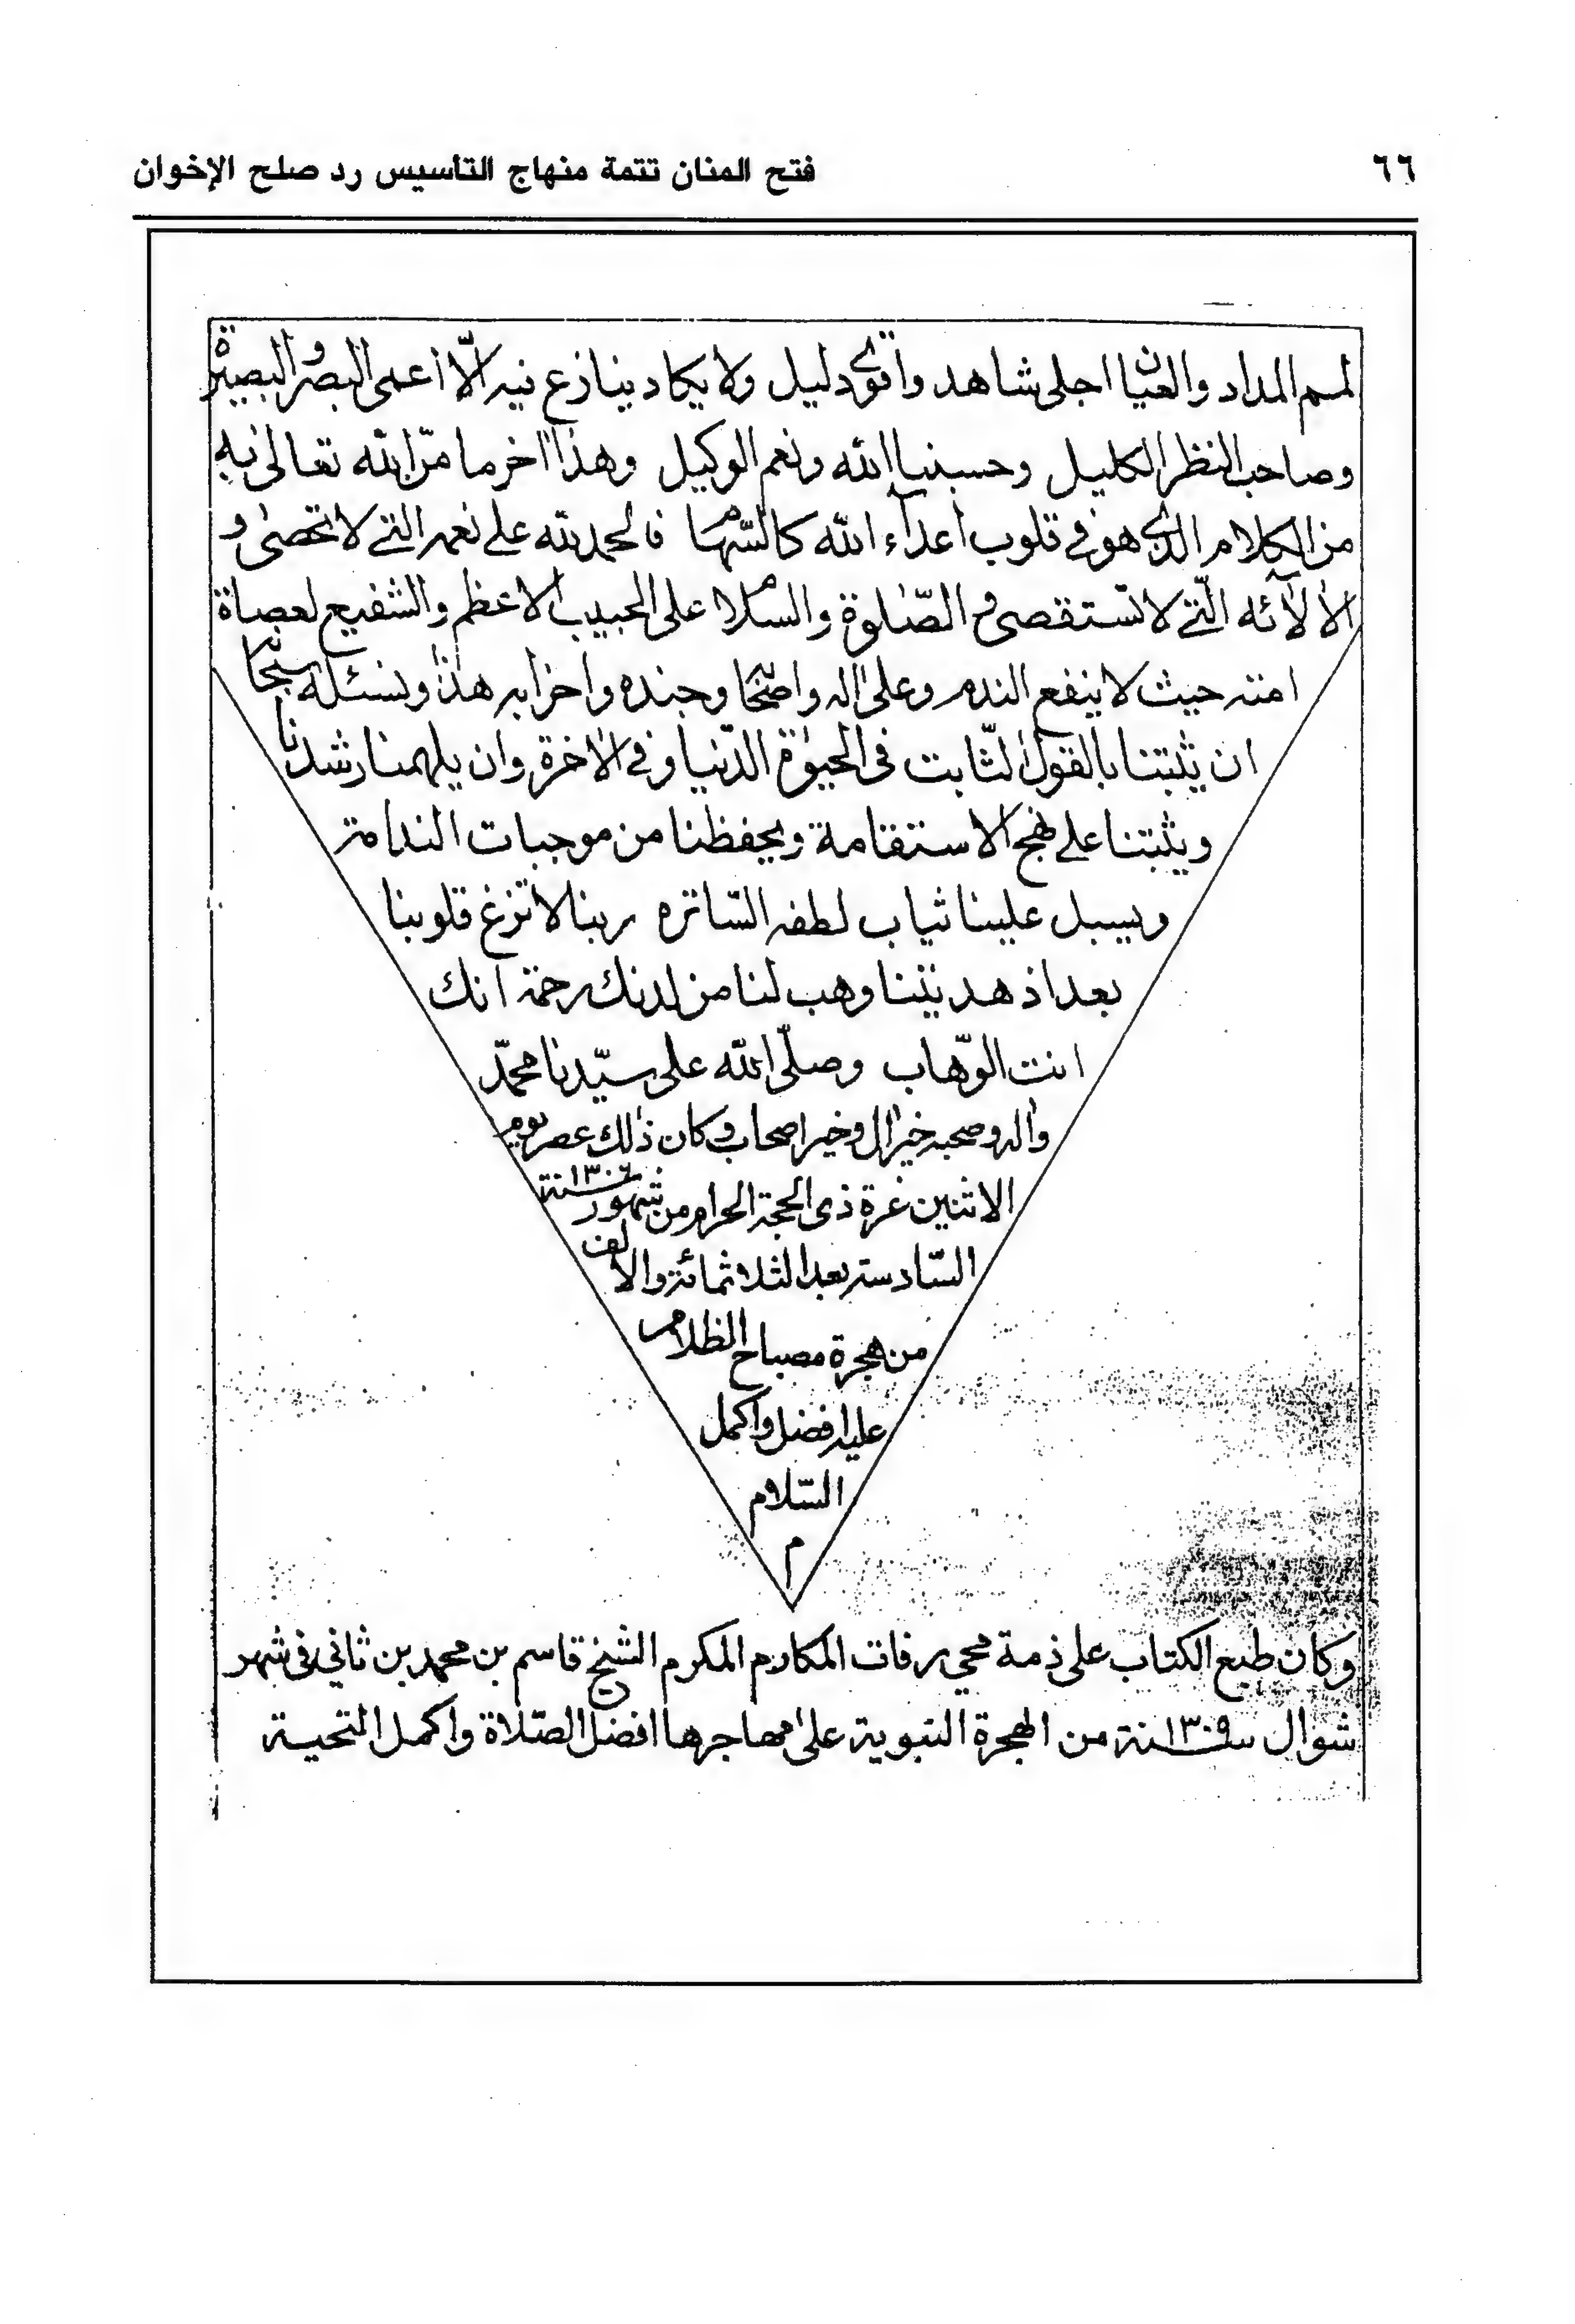 ٦٦ فتح المنان تتمة منهاج التأسيس رد صلح الإخوان
المداد والعيان اجلى شاهد واقوى دليل ولا يكاد ينازع فيه الّا اعمى البصر والبصيرة
وصاحب النظر الكليل وحسبنا الله ونعم الوكيل وهذا اخر ما منّ الله تعالى به
من الكلام الذي هو في قلوب اعدآء الله كالسّهام فالحمد لله على نعمه التي لا تحصى و
الآلائه الّتي لا تستقصى والصّلوة والسّلام على الحبيب الاعظم والشفيع لعصاة
امته حيث لا ينفع الندم وعلى اله واصحابه وجنده واحزابه هذا ونسئله سبحانه
ان يثبتنا بالقول الثّابت في الحيوة الدّنيا وفي الاخرة وان يلهمنا رشدنا
ويثبتنا على نهج الاستقامة ويحفظنا من موجبات الندامة
ويسبل علينا ثياب لطفه السّاتره ربنا لا تزغ قلوبنا
بعد اذ هديتنا وهب لنا من لدنك رحمة انك
انت الوّهاب وصلّى الله على سيّدنا محمّد
واله وصحبه خير ال وخير اصحاب وكان ذلك عصر يوم
الاثنين غرة ذى الحجة الحرام من شهور سنة ١٣٠٦
السّادسة بعد الثلاثمائة والالف
من هجرة مصباح الظلام
عليه افضل واكمل
السّلام
م
وكان طبع الكتاب على ذمة محي رفات المكارم المكرم الشيخ قاسم بن محمد بن ثاني في شهر
شوال سنة ١٣٠٩ من الهجرة النبوية على مهاجرها افضل الصّلاة واكمل التحية